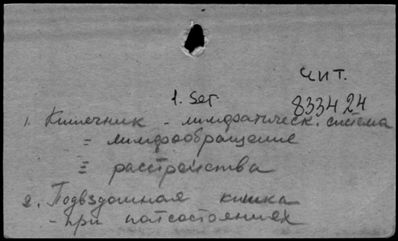 чит.
1. Ser
833424
1. Кишечник - лимфатическ. система
= лимфообращение
≡ расстройства
2. Подвздошная кишка
- при патсостояниях